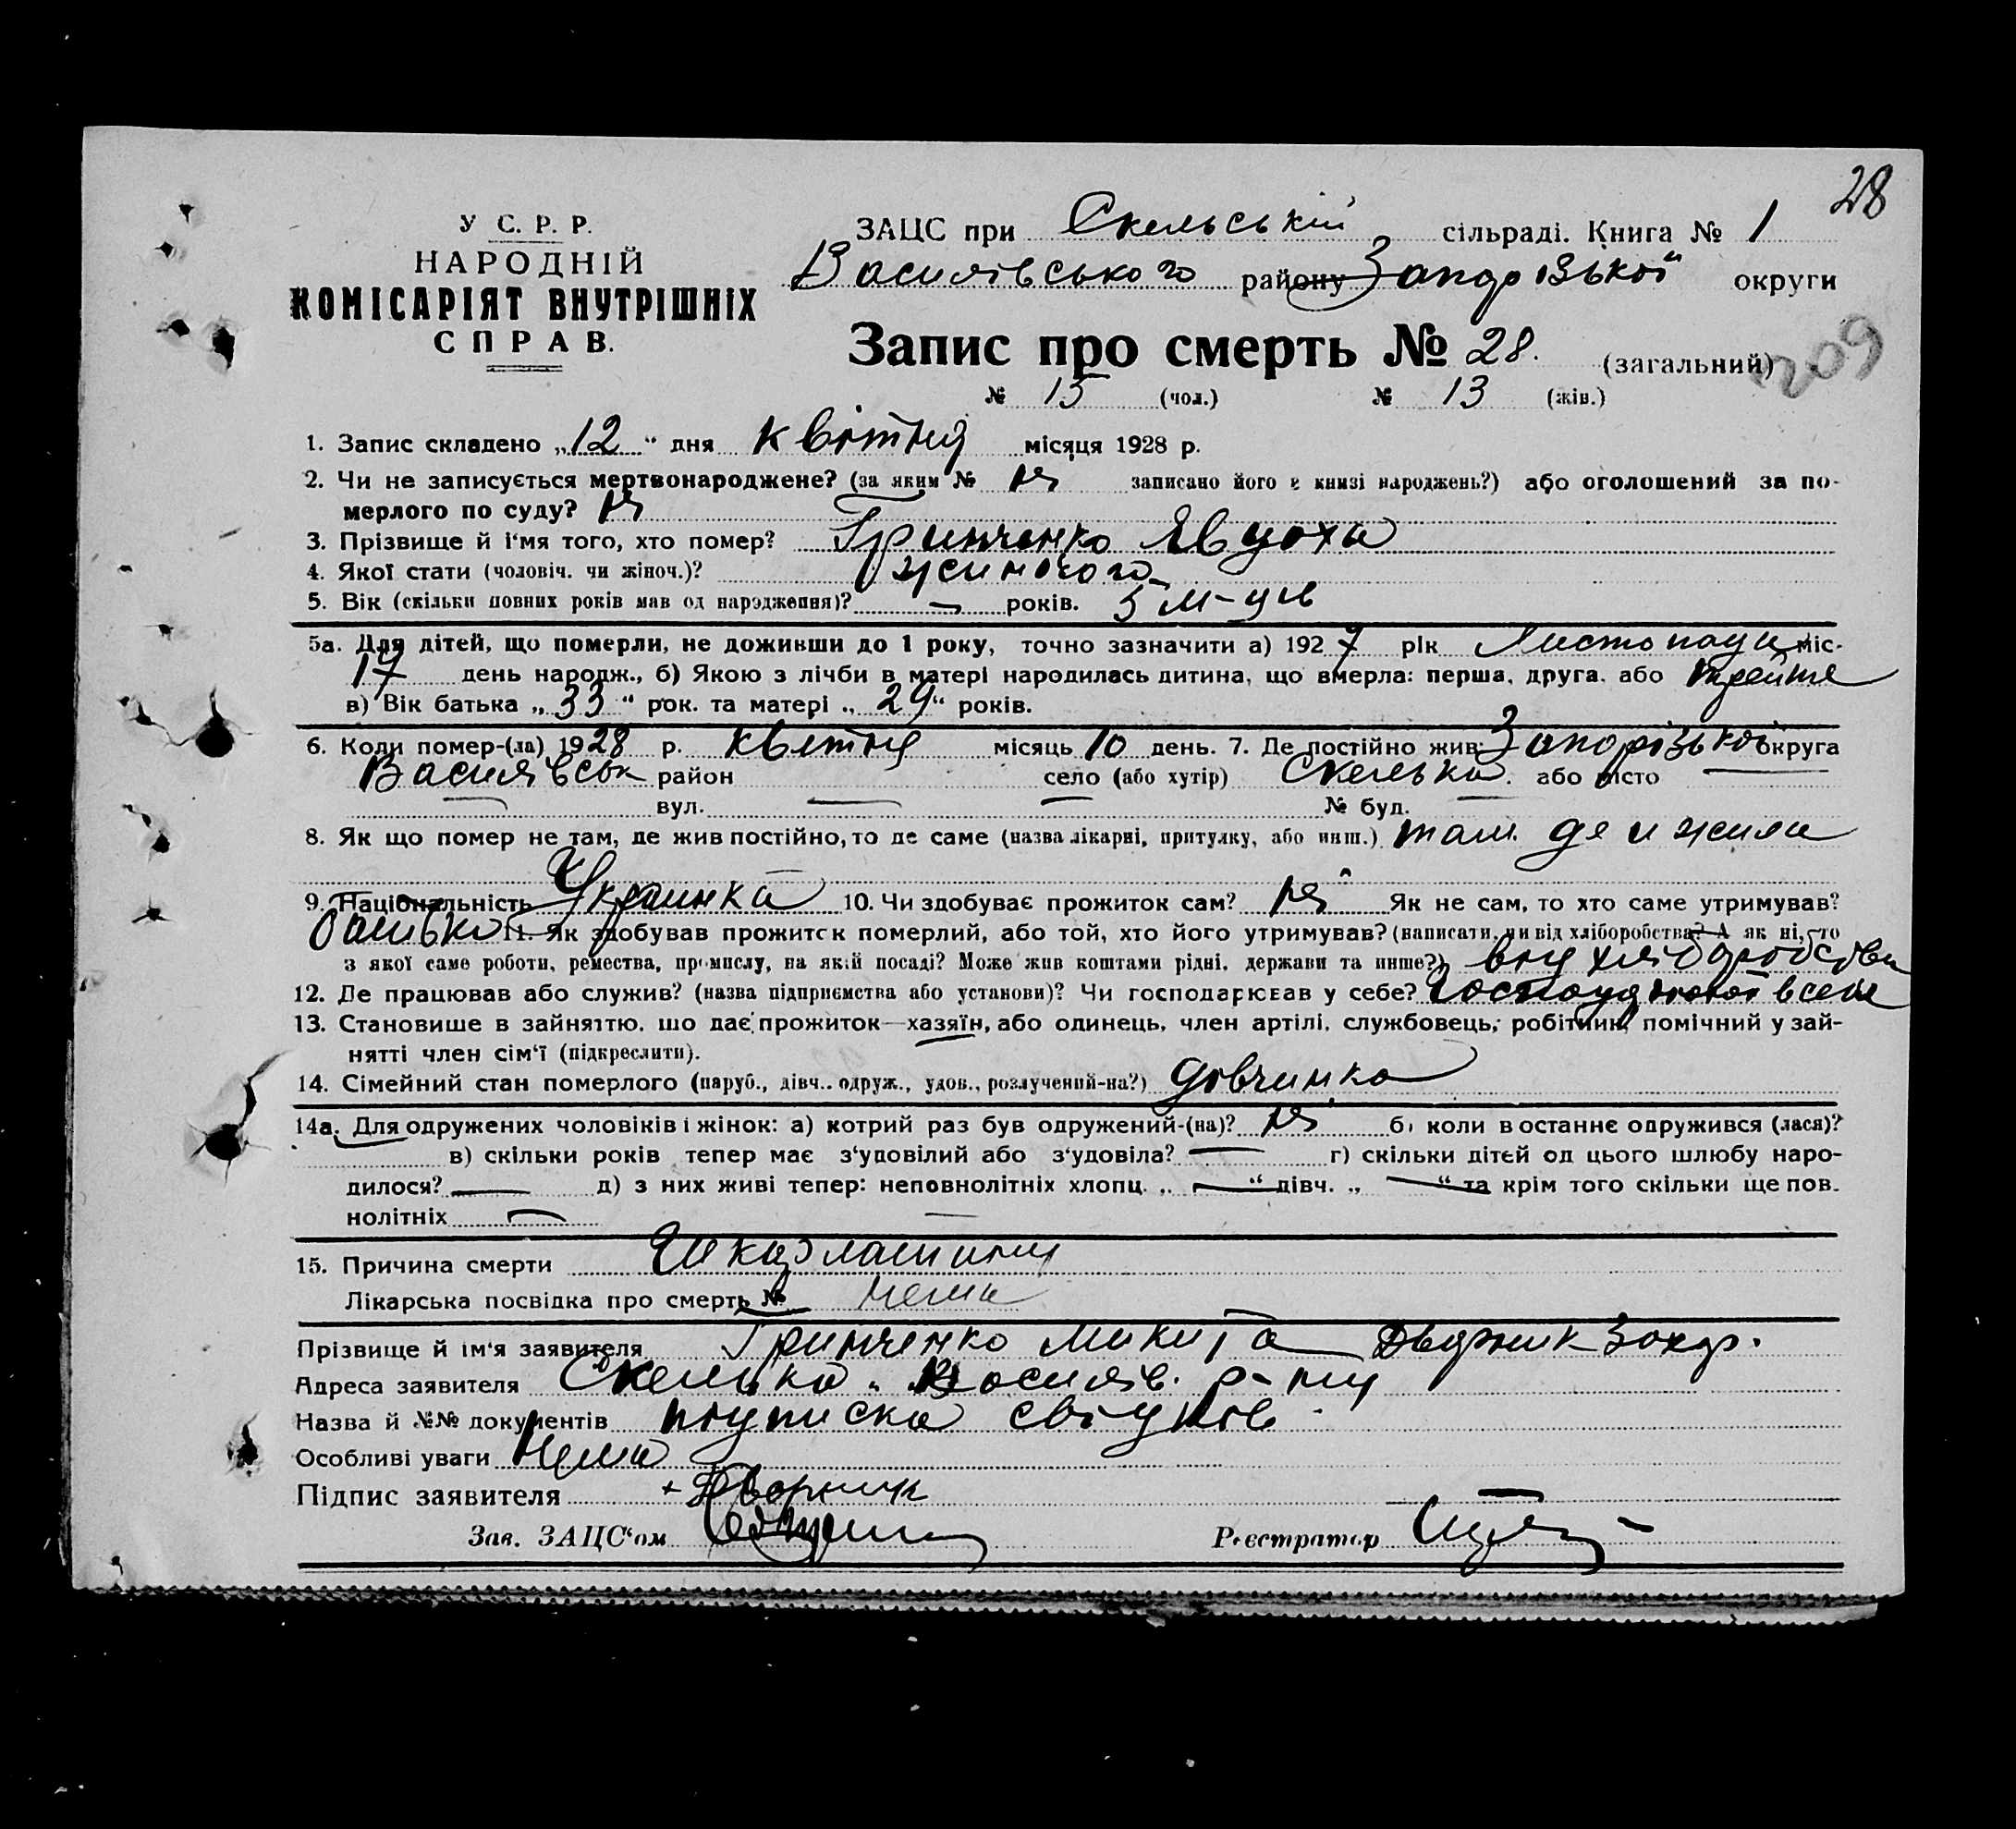 28
У С. Р. Р.
НАРОДНІЙ
КОМІСАРІЯТ ВНУТРІШНІХ
СПРАВ.
ЗАЦС при Скельській сільраді. Книга № 1
Василівського району Запорізької округи
Запис про смерть № 28. (загальний)
209
№ 15 (чол.) № 13 (жін.)
1. Запис складено „12" дня квітня місяця 1928 р.
2. Чи не записується мертвонароджене? (за яким № ні записано його в книзі народжень?) або оголошений за по-
мерлого по суду? ні
3. Прізвище й і'мя того, хто помер? Грипченко Явдоха
4. Якої стати (чоловіч. чи жіноч.)? жиночого
5. Вік (скільки повних років мав од народження)? — років. 5 м-ців
5а. Для дітей, що померли, не доживши до 1 року, точно зазначити а) 1927 рік Листопади міс.
17 день народж., б) Якою з лічби в матері народилась дитина, що вмерла: перша, друга, або третя
в) Вік батька „33" рок. та матері „29" років.
6. Коли помер-(ла) 1928 р. квітня місяць 10 день. 7. Де постійно жив: Запорізької округа
Василівськ район село (або хутір) Скелька. або місто —
— вул. — — № буд. —
8. Як що помер не там, де жив постійно, то де саме (назва лікарні, притулку, або инш.) там де и жила
9. Національність Украинка 10. Чи здобуває прожиток сам? ні Як не сам, то хто саме утримував?
батько 11. Як здобував прожиток померлий, або той, хто його утримував? (написати, чи від хліборобства? А як ні, то
з якої саме роботи, ремества, промислу, на якій посаді? Може жив коштами рідні, держави та инше?) вид хліборобства
12. Де працював або служив? (назва підприємства або установи)? Чи господарював у себе? в себе
13. Становище в зайняттю, що дає прожиток—хазяїн, або одинець, член артілі, службовець, робітник, помічний у зай-
нятті член сім'ї (підкреслити).
14. Сімейний стан померлого (паруб., дівч., одруж., удов., розлучений-на?) дівчинка
14а. Для одружених чоловіків і жінок: а) котрий раз був одружений-(на)? ні б) коли в останнє одружився (лася)?
в) скільки років тепер має з'удовілий або з'удовіла? — г) скільки дітей од цього шлюбу наро-
дилося? — д) з них живі тепер: неповнолітніх хлопц. „—" дівч. „—" та крім того скільки ще пов.
нолітніх — —
15. Причина смерти
Лікарська посвідка про смерть № нема
Прізвище й ім'я заявителя Грипченко Микита Дворник Захар.
Адреса заявителя Скелька. Василів. р-ну
Назва й №№ документів подписка свідків.
Особливі уваги Нема
Підпис заявителя + Дворник
Зав. ЗАЦС'ом Реєстратор